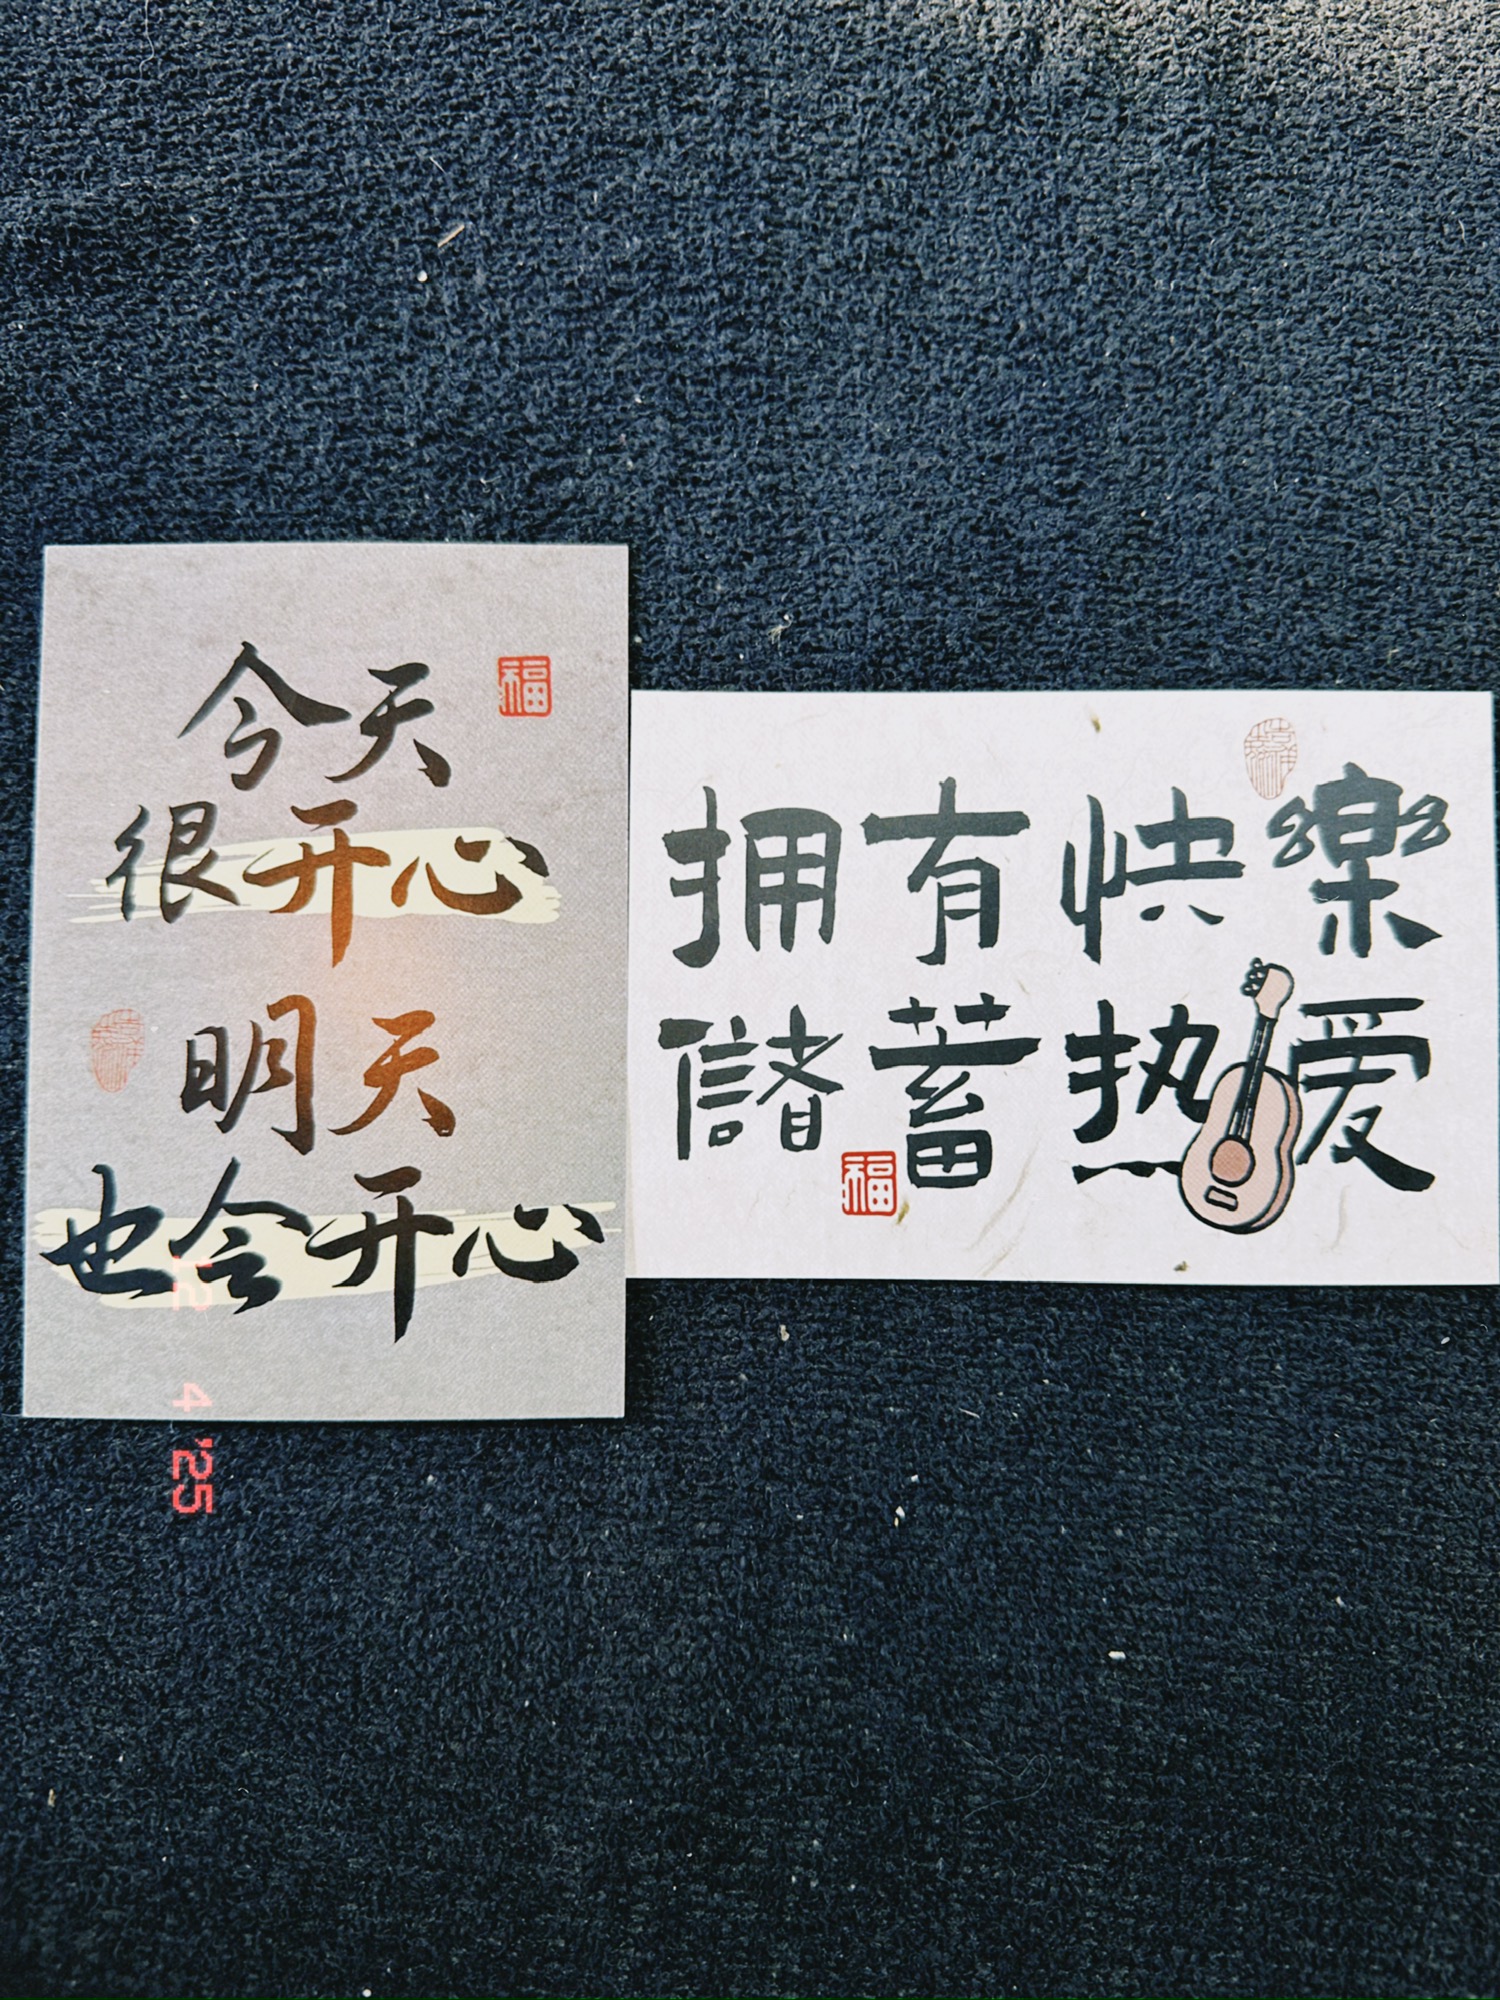 今天
福
很开心
明天
也会开心
拥有快樂
儲蓄热爱
福
12 4 '25